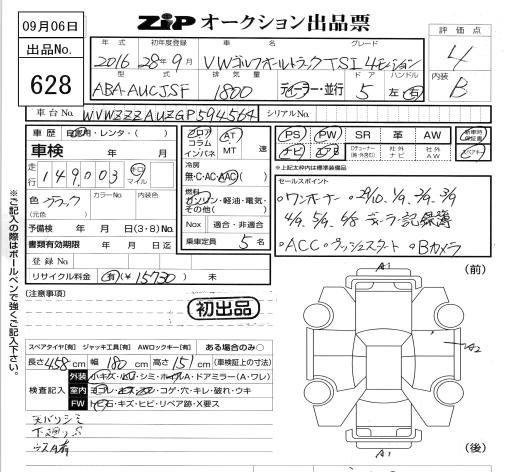 09月06日
出品No.
628
ZIP オークション出品票
評価点
4
内装
B
年式 初年度登録 車名 グレード
2016 28年9月 VWゴルフオールトラックTSI 4モーション
型式 排気量 ドア ハンドル
ABA-AUCJSF 1800 ディーラー・並行 5 左・右
車台No. WVWZZZAUZGP594564 シリアルNo.
車歴 自家用・レンタ・( )
車検 年 月 日
走行 149,003 キロ マイル
色 ブラック カラーNo. 内装色
(元色 )
予備検 年 月 日(3・8)No.
書類有効期限 年 月 日迄
登録No.
リサイクル料金 有(¥15730) 未
フロア コラム インパネ
AT MT 速
冷房
無・C・AC・AAC( )
燃料
ガソリン・軽油・電気・
その他( )
Nox 適合・非適合
乗車定員 5名
PS PW SR 革 AW 新車時保証書
ナビ エアB 社外ナビ 社外AW
※上記太枠内は標準装備品
セールスポイント
・ワンオーナー ・29/10. 1/9. 2/9. 3/9
4/9. 5/9. 6/8 ディーラー記録簿
・ACC ・プッシュスタート ・Bカメラ
※ご記入の際はボールペンで強くご記入下さい。
[注意事項]
初出品
スペアタイヤ[有] ジャッキ工具[有] AWロックキー[有] ある場合のみ○
長さ458cm 幅180cm 高さ151cm(車検証上の寸法)
検査記入
外装 小キズ・凹・シミ・ホイルA・ドアミラー(A・ワレ)
室内 ヨゴレ・キズ・スレ・コゲ・穴・キレ・破れ・ウキ
FW トビ石・キズ・ヒビ・リペア跡・X要ス
天バリシミ
下廻りS
ウスA有
A1
(前)
A2
A1
(後)